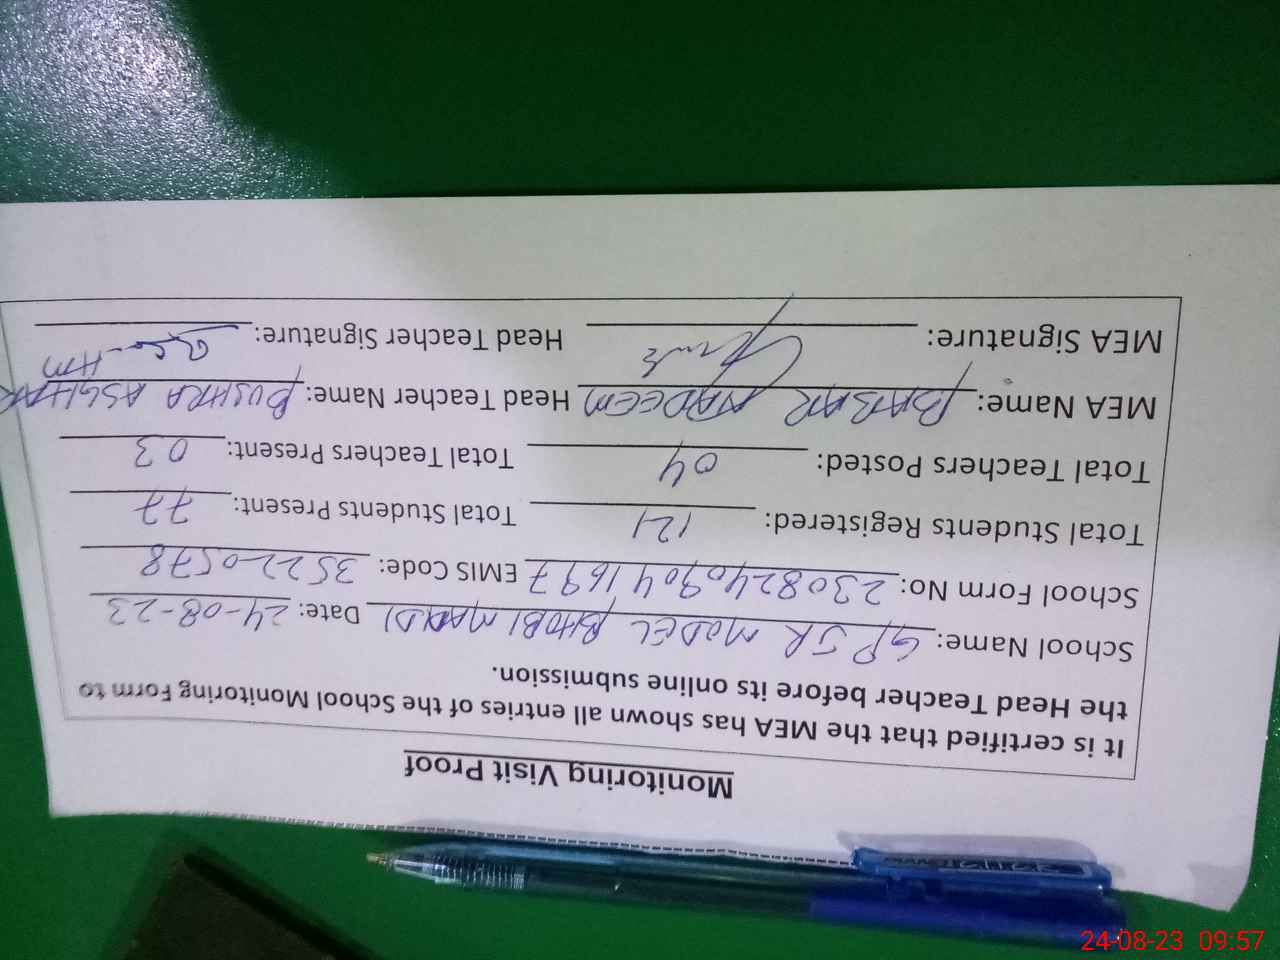 Monitoring Visit Proof
It is certified that the MEA has shown all entries of the School Monitoring Form to
the Head Teacher before its online submission.
School Name: GPSR MODEL BHOBI MANDI Date: 24-08-23
School Form No: 23082409041697 EMIS Code: 35220578
Total Students Registered: 121 Total Students Present: 77
Total Teachers Posted: 04 Total Teachers Present: 03
MEA Name: BABAR NADEEM Head Teacher Name: BUSHRA ASGHAR
MEA Signature: Head Teacher Signature: HM
24-08-23 09:57